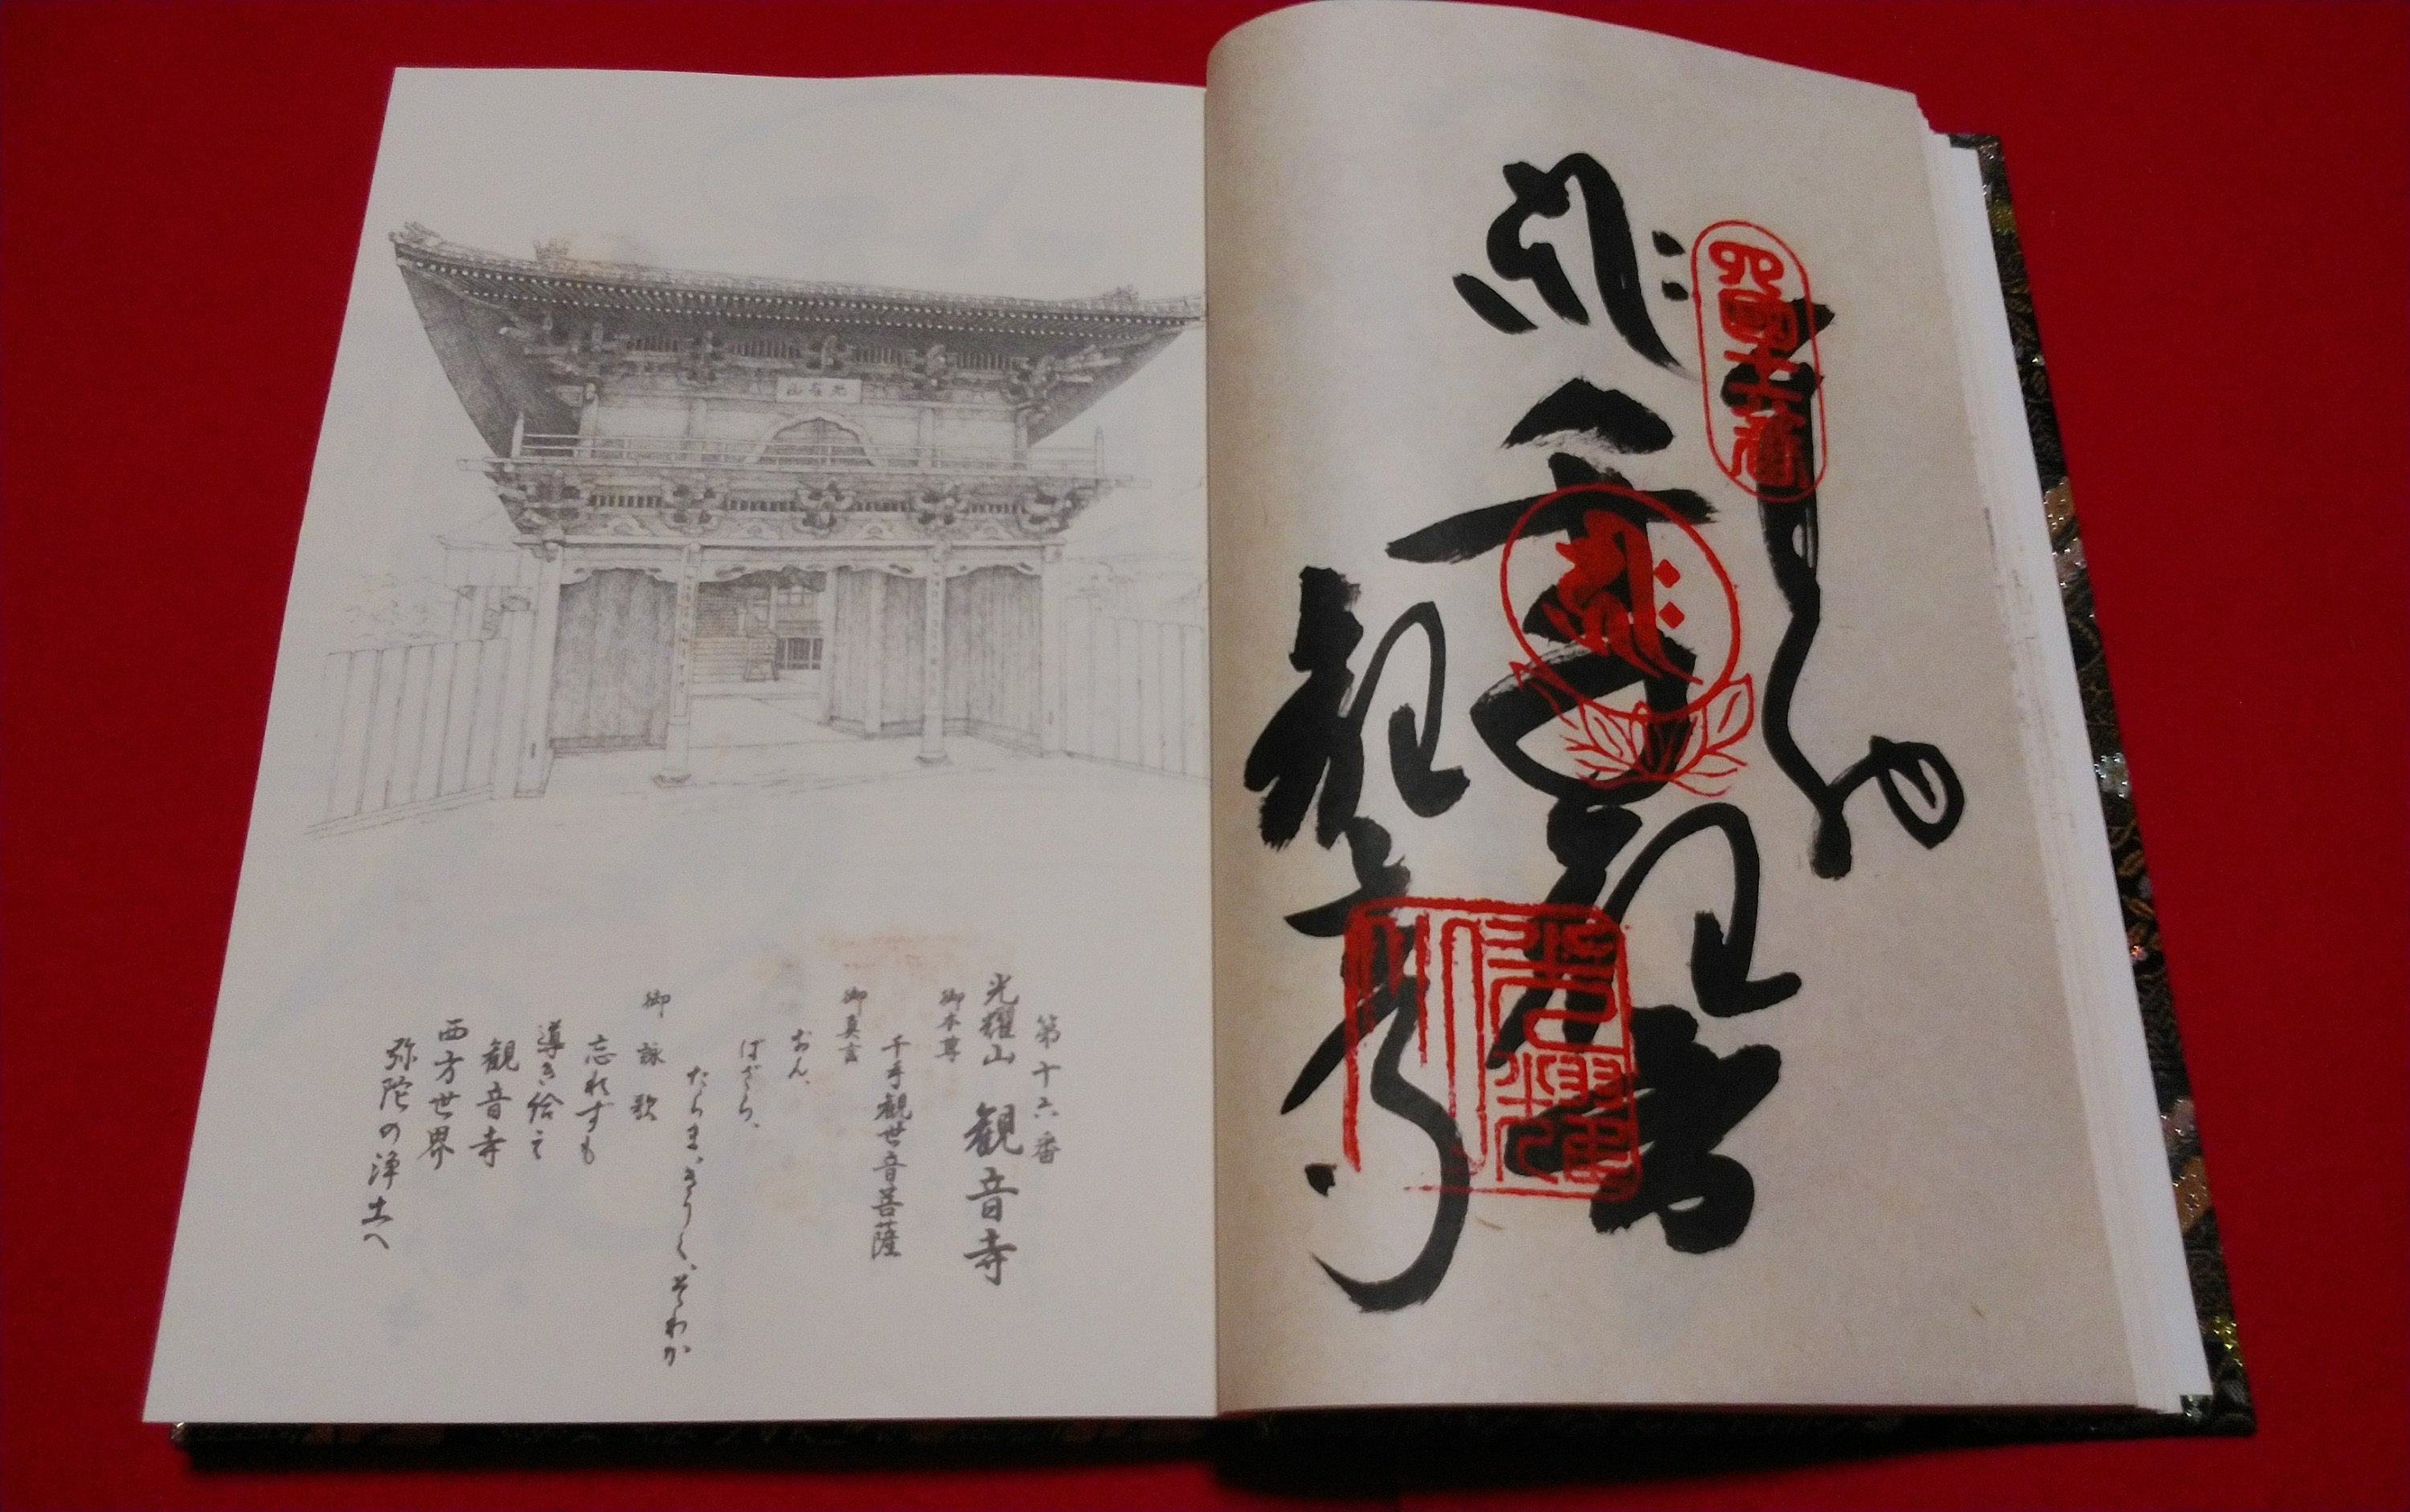 四国十六番
観音寺
光耀山
第十六番
光耀山 観音寺
御本尊
千手観世音菩薩
御真言
おん、
ばざら、
たらま、きりく、そわか
御詠歌
忘れずも
導き給え
観音寺
西方世界
弥陀の浄土へ